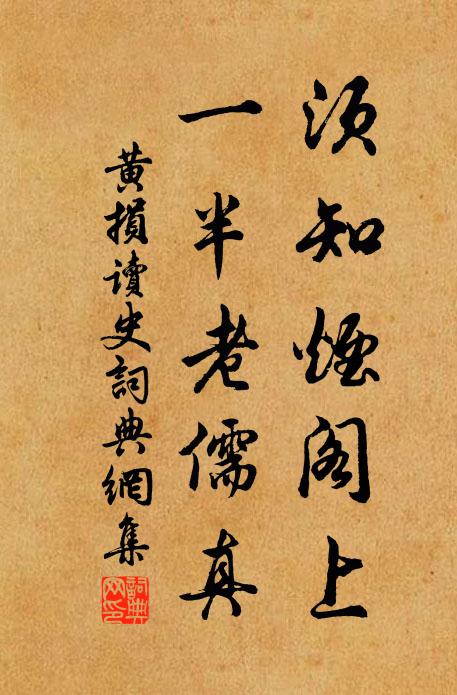 須知煙阁上
一半老儒真
黄損讀史詞典網集
詞典网印